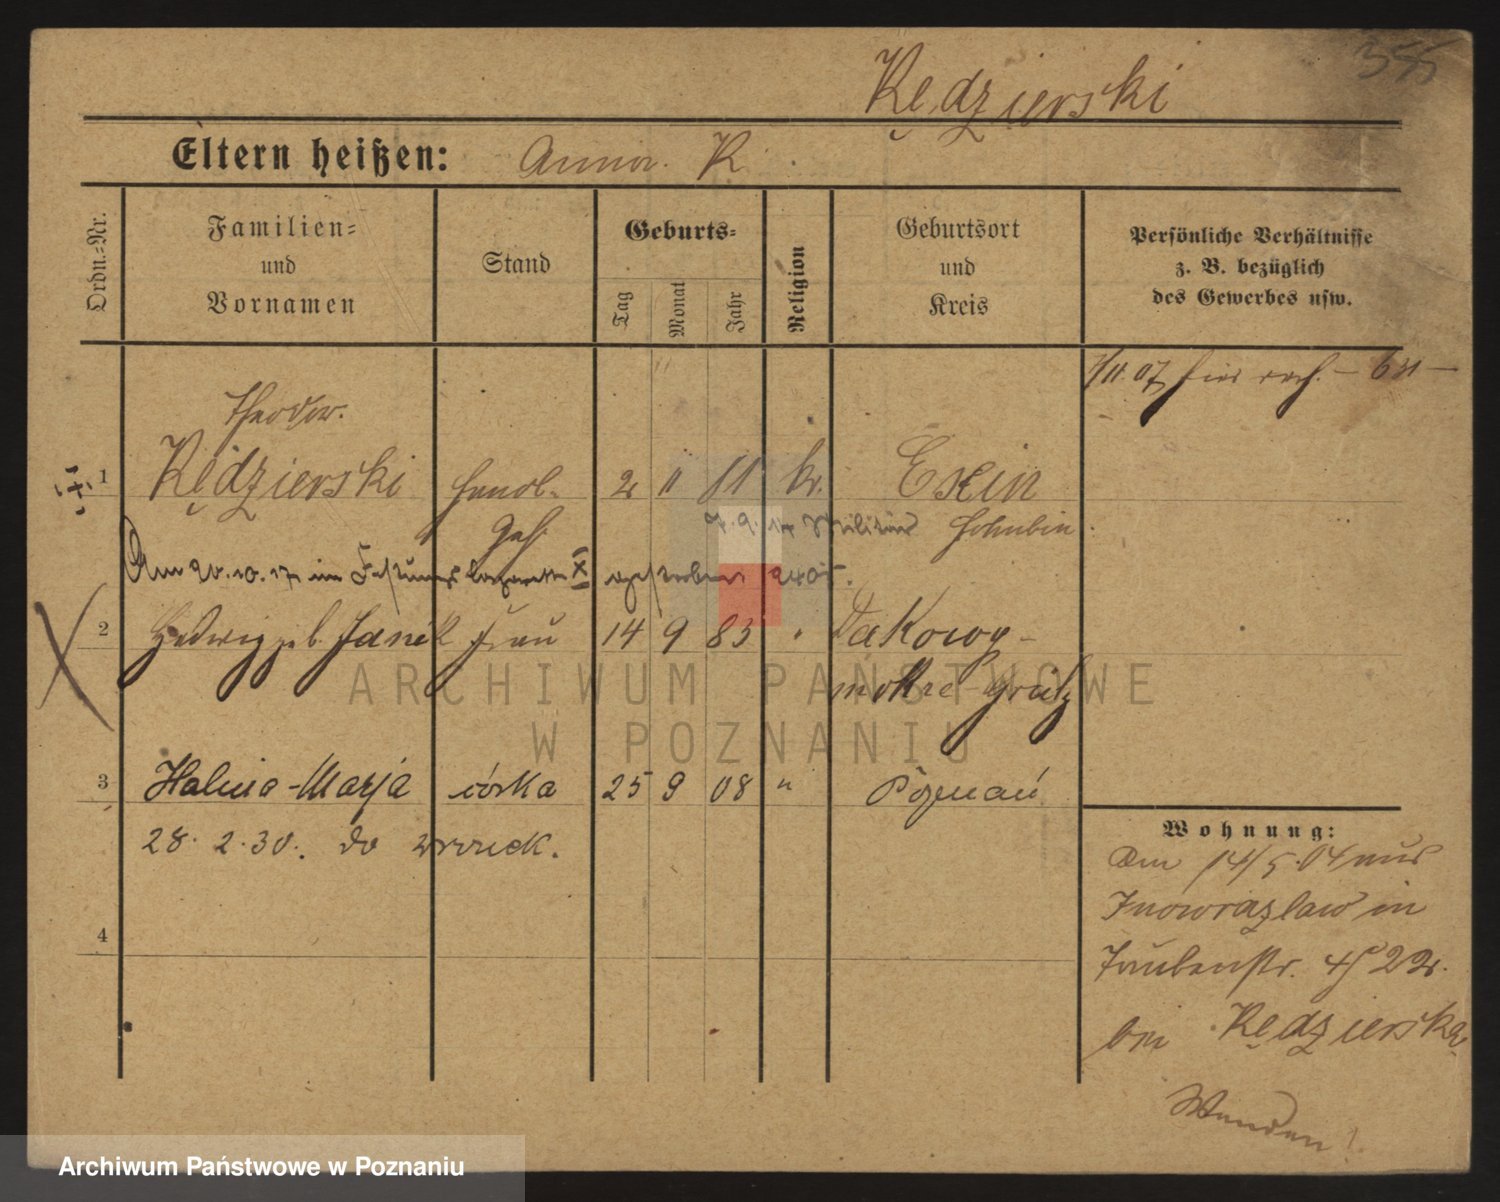 355
Kędzierski
Eltern heißen: Anna K.
Ordn.-Nr.
Familien-
und
Vornamen
Stand
Geburts-
Tag
Monat
Jahr
Religion
Geburtsort
und
Kreis
Persönliche Verhältnisse
z. B. bezüglich
des Gewerbes usw.
7/11.07 hier
Theodor.
1 Kędzierski Handl. 2 11 81 k. Exin
Geh. 7.9.14 Militär Schubin
Am 20.10.17 im Festungslazarett XI gestorben 2405.
2 Hedwig geb. Janik Frau 14 9 83 " Dakowy-
mokre Grätz
3 Halina-Marja córka 25 9 08 " Poznań
28. 2. 30. do
4
Wohnung:
Am 14/5.04 aus
Inowrazlaw in
Taubenstr. 4 S 22.
bei Kędzierska
Wenden!
ARCHIWUM PAŃSTWOWE
W POZNANIU
Archiwum Państwowe w Poznaniu